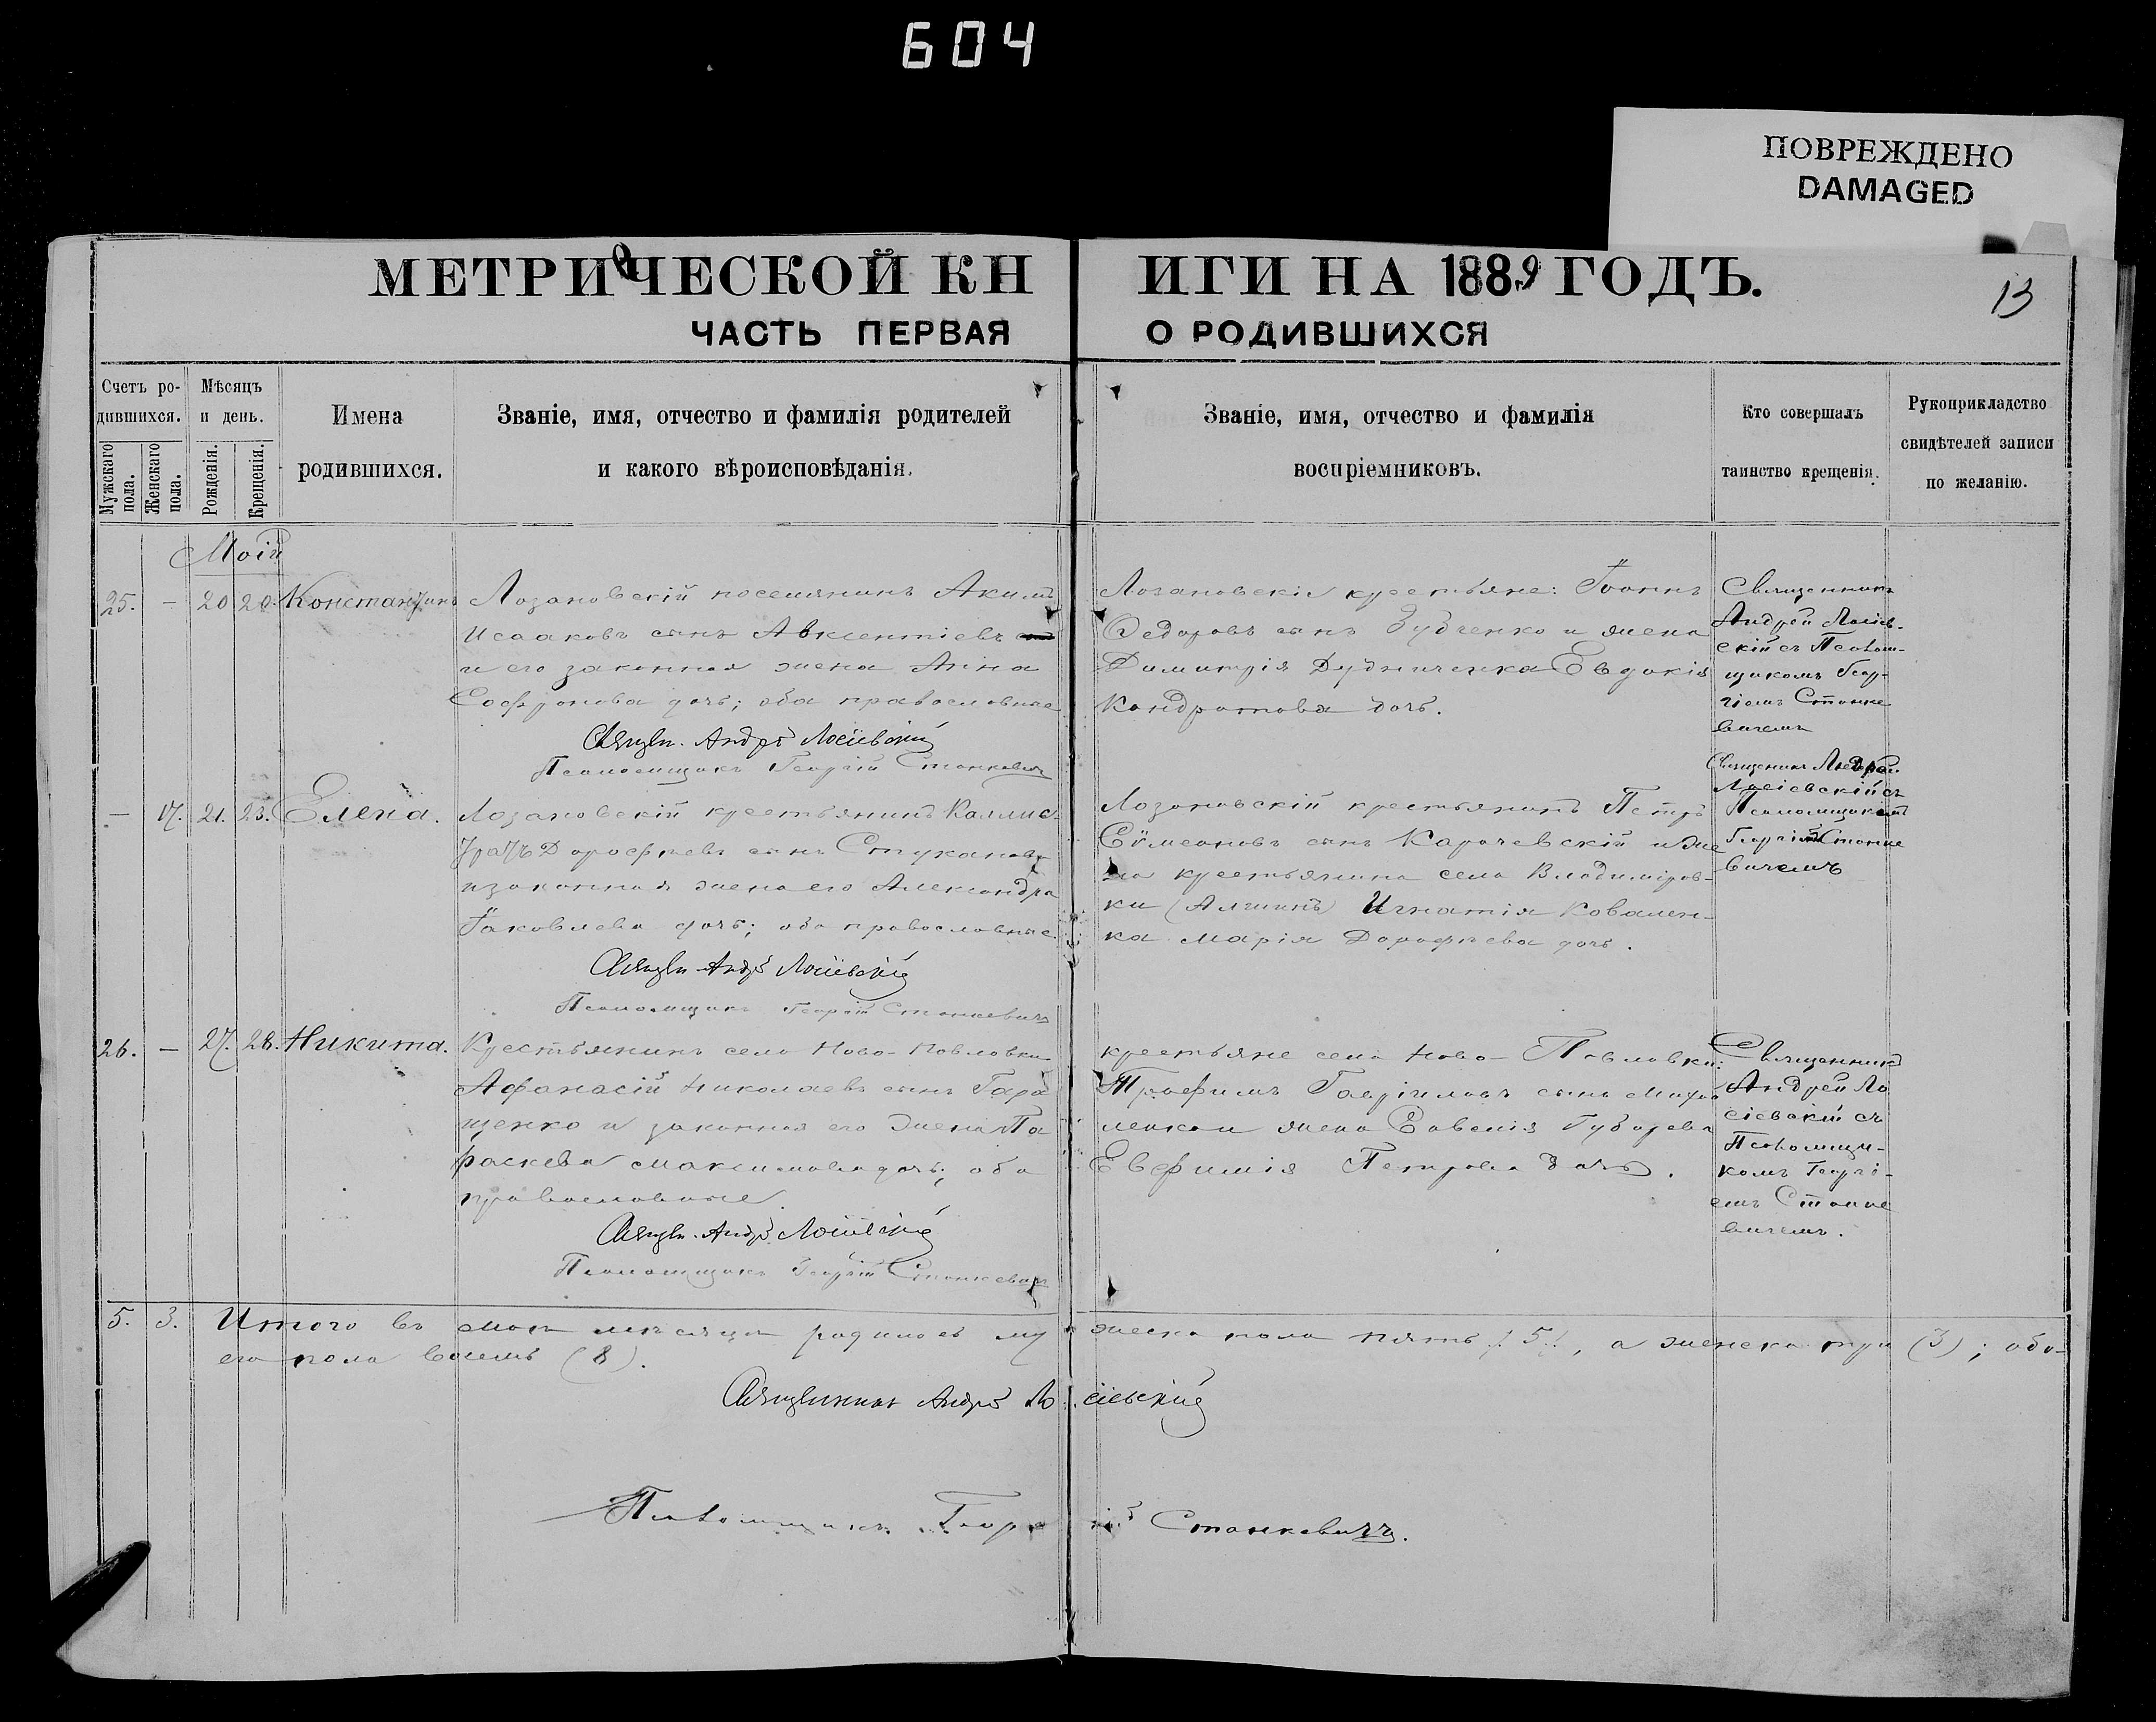 604
ПОВРЕЖДЕНО
DAMAGED
МЕТРИЧЕСКОЙ КНИГИ НА 1889 ГОДЪ.
13
ЧАСТЬ ПЕРВАЯ О РОДИВШИХСЯ
Счетъ ро-
дившихся.
Мужскаго пола.
Женскаго пола.
Мѣсяцъ
и день.
Рожденія.
Крещенія.
Имена
родившихся.
Званіе, имя, отчество и фамилія родителей
и какого вѣроисповѣданія.
Званіе, имя, отчество и фамилія
воспріемниковъ.
Кто совершалъ
таинство крещенія.
Рукоприкладство
свидѣтелей записи
по желанію.
Маій
25. — 20 20. Константинъ
Лозановскій поселянинъ Акимъ
Исааковъ сынъ Авксентіевъ
и его законная жена Анна
Софронова дочь; оба православные
Священ. Андрей Лосіевскій
Псаломщикъ Георгій Станкевичъ
Лозановскіе крестьяне: Іоаннъ
Ѳедоровъ сынъ Зубченко и жена
Димитрія Дудниченка Евдокія
Кондратова дочь.
Священникъ
Андрей Лосіев-
скій съ Псалом-
щикомъ Геор-
гіемъ Станке
вичемъ
— 17. 21. 23. Елена.
Лозановскій крестьянинъ Каллис-
тратъ Дорофеевъ сынъ Стукановъ
и законная жена его Александра
Іаковлева дочь; оба православные.
Священ Андрей Лосіевскій
Псаломщикъ Георгій Станкевичъ
Лозановскій крестьянинъ Петръ
Сѵмеоновъ сынъ Карачевскій и же
на крестьянина села Владиміров-
ки (Алчинъ) Игнатія Ковален-
ка Марія Дорофѣева дочь.
Священникъ Андрей
Лосіевскій съ
Псаломщикомъ
Георгіемъ Станке
вичемъ
26. — 27. 28. Никита.
Крестьянинъ села Ново-Павловки
Афанасій Николаевъ сынъ Гара
щенко и законная его жена Па
раскева Максимова дочь; оба
православные.
Священ. Андрей Лосіевскій
Псаломщикъ Георгій Станкевичъ
крестьяне села Ново-Павловки:
Трофимъ Гавріиловъ сынъ
жена Савелія Губарева
Евфимія Петрова дочь.
Священникъ
Андрей Ло
сіевскій съ
Псаломщи-
комъ Георгі-
емъ Станке
вичемъ.
5. 3. Итого въ маѣ мѣсяцѣ родилось мужеска пола пять (5), а женска три (3); обо-
его пола восемь (8).
Священникъ Андрей Лосіевскій
Псаломщикъ Георгій Станкевичъ.